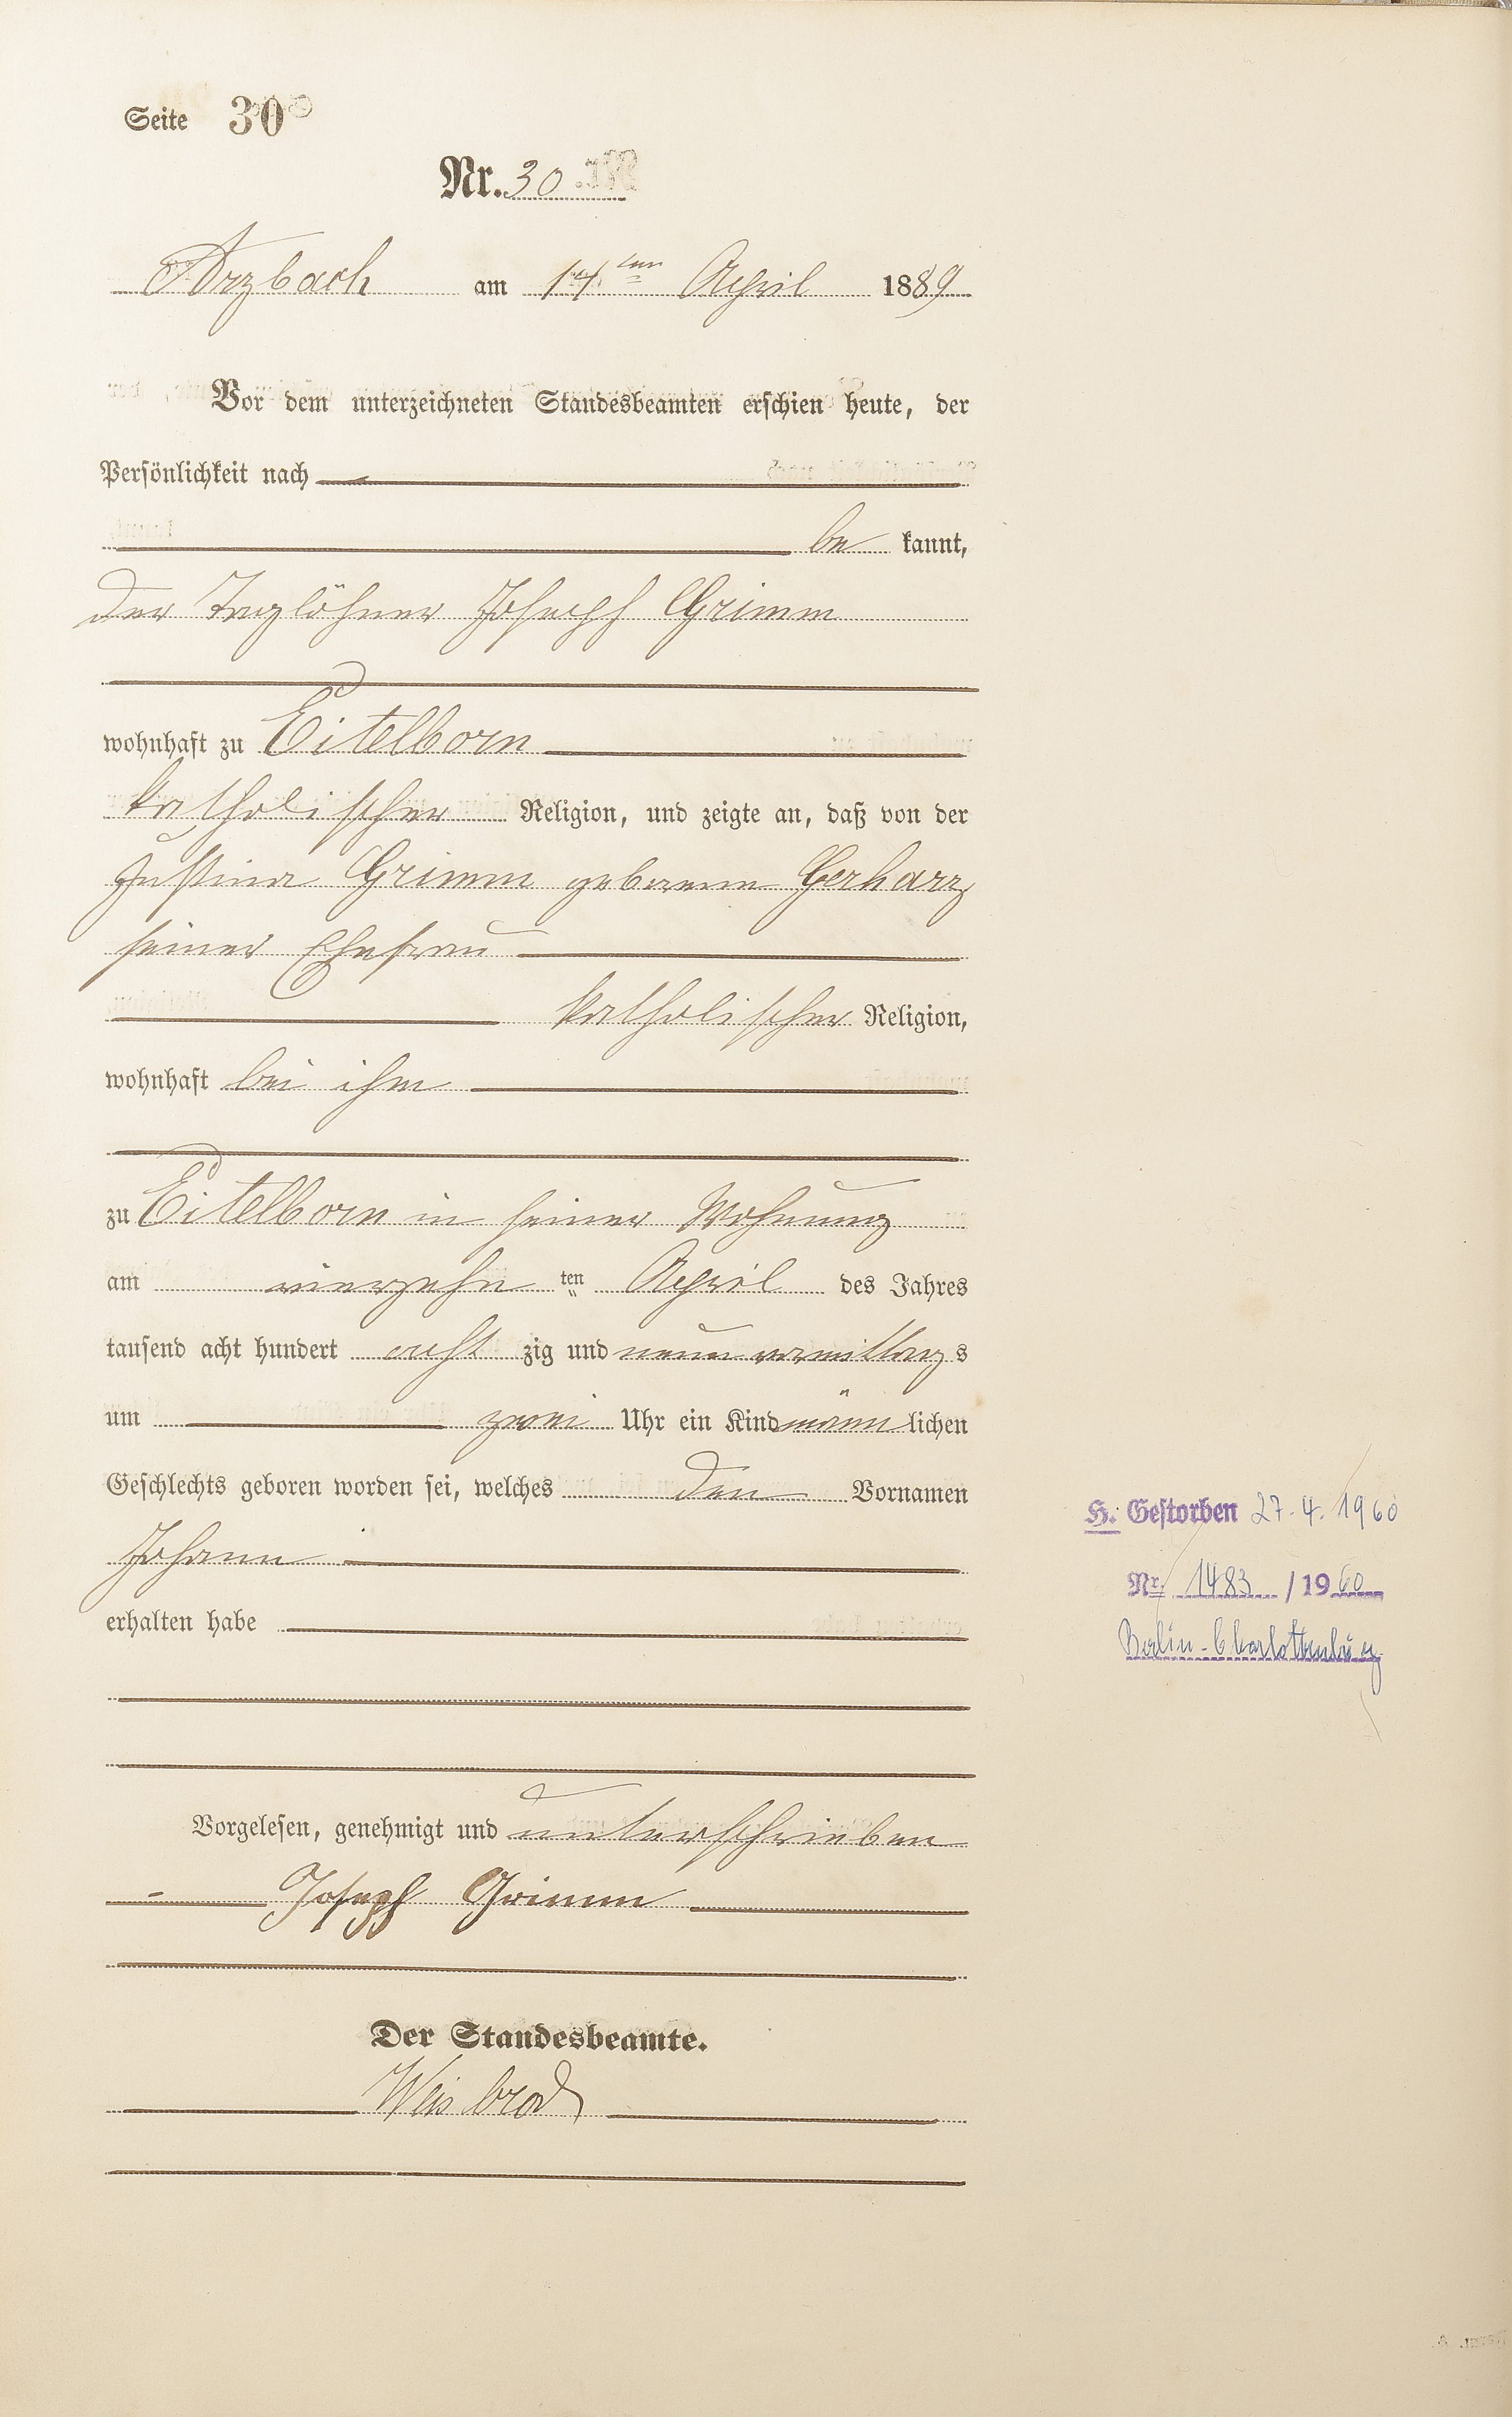 Seite 30
Nr. 30
Arzbach am 14ten April 1889
Vor dem unterzeichneten Standesbeamten erschien heute, der
Persönlichkeit nach
be kannt,
der Taglöhner Joseph Grimm
wohnhaft zu Eitelborn
katholischer Religion, und zeigte an, daß von der
Justina Grimm geborenen Gerharz
seiner Ehefrau
katholischer Religion,
wohnhaft bei ihm
zu Eitelborn in seiner Wohnung
am vierzehn ten April des Jahres
tausend acht hundert acht zig und neun vormittags
um zwei Uhr ein Kind männ lichen
Geschlechts geboren worden sei, welches den Vornamen
Johann
erhalten habe
H: Gestorben 27.4.1960
Nr. 1483 / 1960
Berlin-Charlottenburg
Vorgelesen, genehmigt und unterschrieben
Joseph Grimm
Der Standesbeamte.
Weisbrod